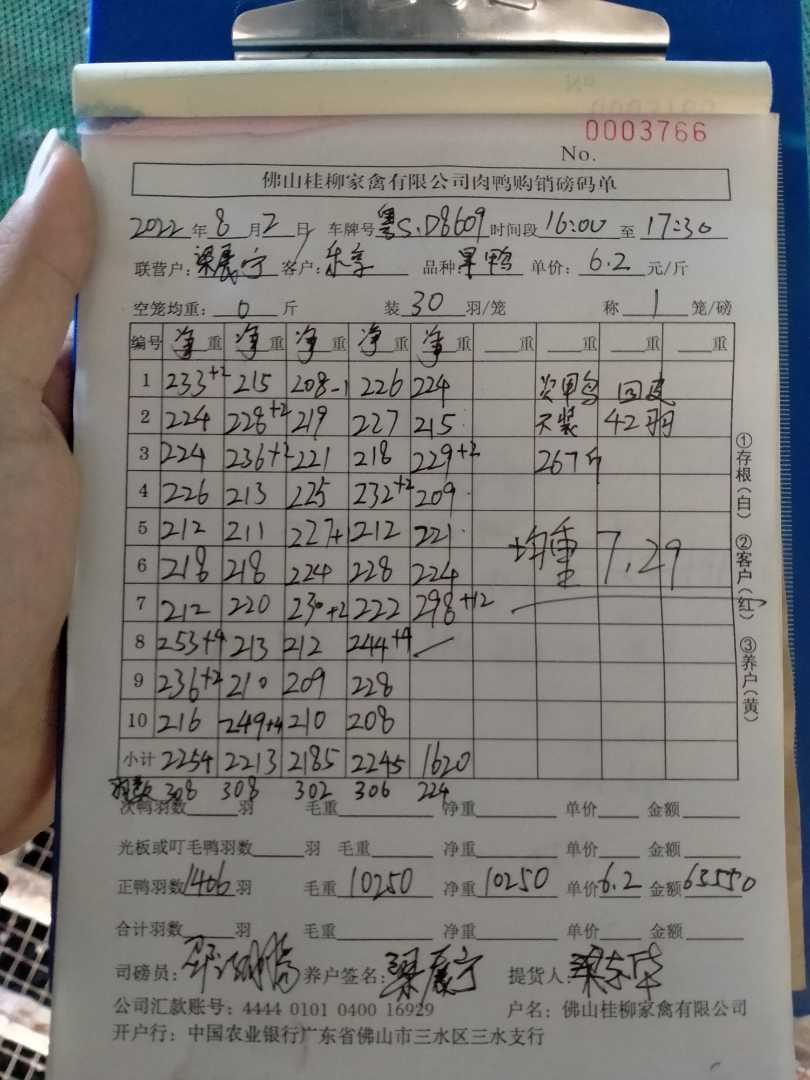 0003766
No.
佛山桂柳家禽有限公司肉鸭购销磅码单
2022年8月2日 车牌号粤S.D8609时间段16:00至17:30
联营户:梁展宁 客户:乐享 品种果鸭 单价:6.2元/斤
空笼均重:0斤 装30羽/笼 称1笼/磅
编号 净重 净重 净重 净重 净重 重 重 重 重
1 233+2 215 208-1 226 224 次鸭 回皮
2 224 228+2 219 227 215 不装 42羽
3 224 236+2 221 218 229+2 267斤
4 226 213 225 232+2 209
5 212 211 227+1 212 221 均重 7.29
6 218 218 224 228 224
7 212 220 230+2 222 298+12
8 253+4 213 212 244+4
9 236+2 210 209 228
10 216 249+4 210 208
小计 2254 2213 2185 2245 1620
羽数 308 308 302 306 224
次鸭羽数 羽 毛重 净重 单价 金额
光板或叮毛鸭羽数 羽 毛重 净重 单价 金额
正鸭羽数1406羽 毛重10250 净重10250 单价6.2 金额63550
合计羽数 羽 毛重 净重 单价 金额
司磅员: 养户签名:梁展宁 提货人:
公司汇款账号:4444 0101 0400 16929 户名:佛山桂柳家禽有限公司
开户行:中国农业银行广东省佛山市三水区三水支行
①存根(白) ②客户(红) ③养户(黄)